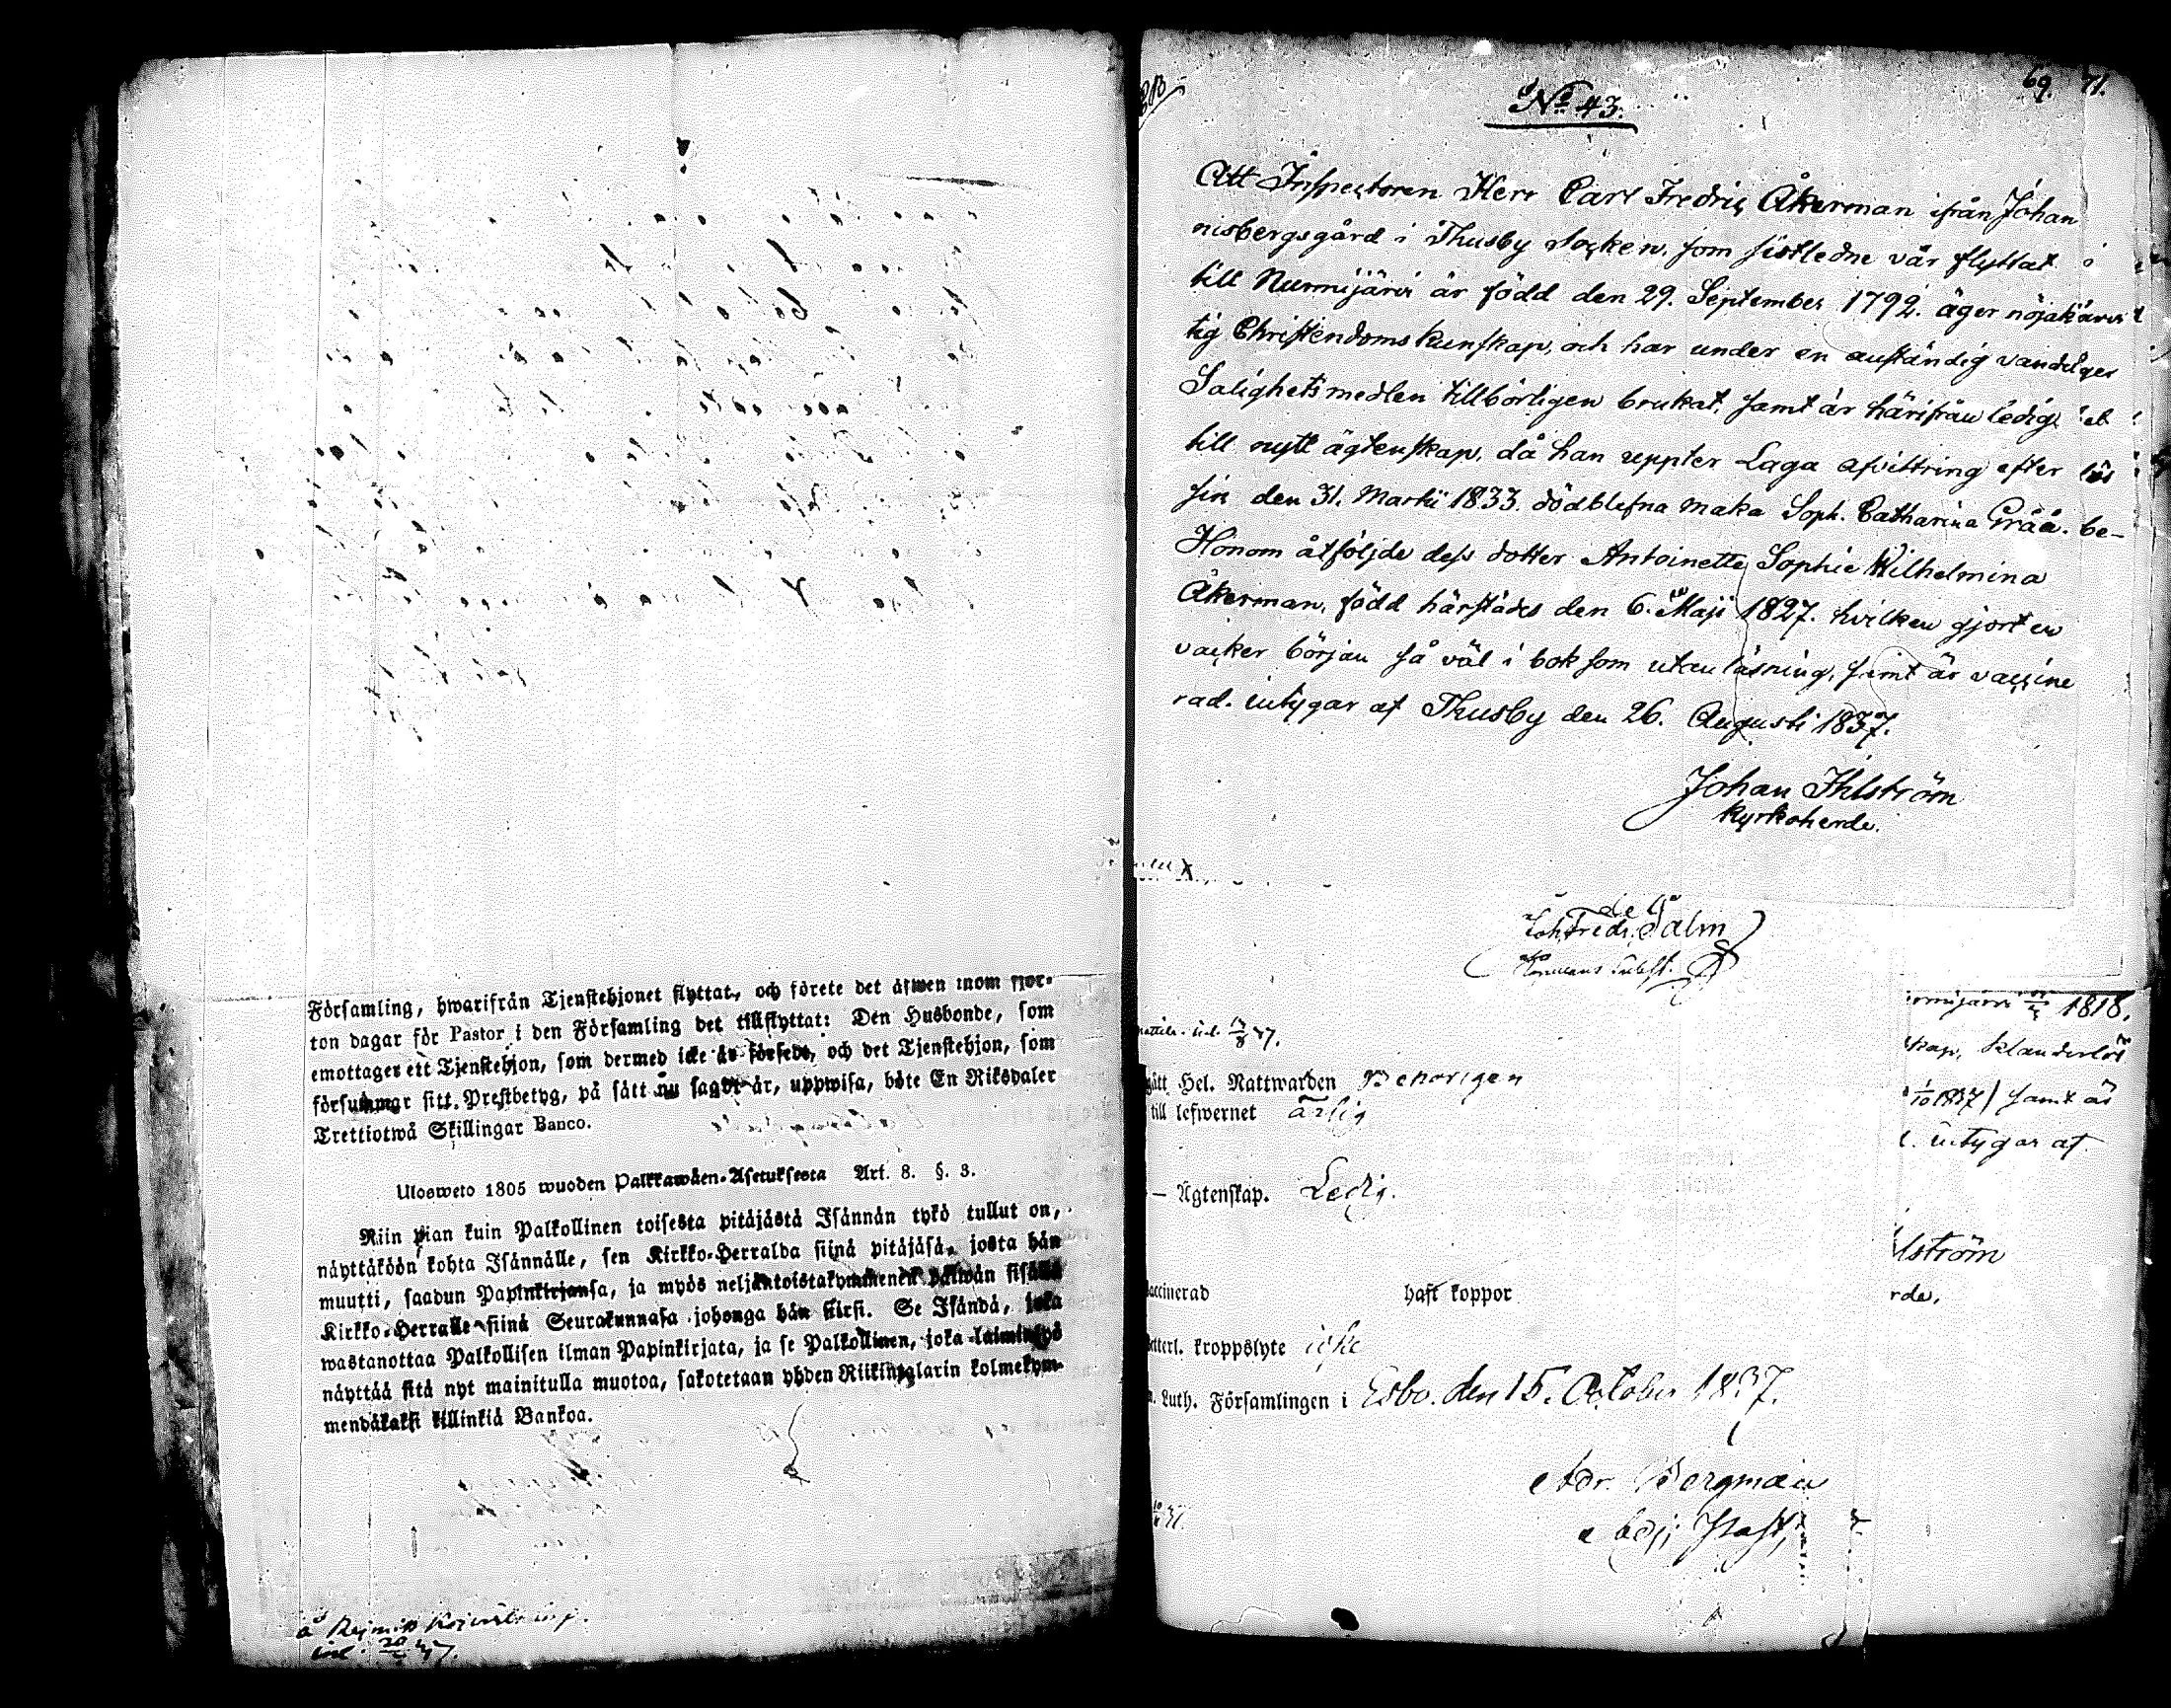 Församling, hwarifrån Tjenstehjonet flyttat, och förete det äfwen inom fjor-
ton dagar för Pastor i den Församling det tillflyttat: Den Husbonde, som
emottager ett Tjenstehjon, som dermed icke är försedt, och det Tjenstehjon, som
försummar sitt Prestbetyg, på sätt nu sagdt är, uppwisa, böte En Riksdaler
Trettiotwå Skillingar Banco.
Ulosweto 1805 wuoden Palkkawäen-Asetuksesta Art. 8. §. 3.
Niin pian kuin Palkollinen toisesta pitäjästä Isännän tykö tullut on,
näyttäköön kohta Isännälle, sen Kirkko-Herralda siinä pitäjäsä, josta hän
muutti, saadun Papinkirjansa, ja myös neljäntoistakymmenen päiwän sisällä
Kirkko-Herralle siinä Seurakunnasa johonga hän siirsi. Se Isändä, joka
wastanottaa Palkollisen ilman Papinkirjata, ja se Palkollinen, joka laiminlyö
näyttää sitä nyt mainitulla muotoa, sakotetaan yhden Riikintalarin kolmekym-
mendäkaksi killinkiä Bankoa.
69. 71.
No 43.
Att Inspectoren Herr Carl Fredric Åkerman ifrån Johan
nisbergsgård i Thusby Socken, som sistledne vår flyttat
till Nurmijärvi är född den 29. September 1792. äger nöjak
tig Christendoms kunskap, och har under en anständig vandel
Salighetsmedlen tillbörligen brukat, samt är härifrån ledig
till nytt ägtenskap, då han uppter Laga afvittring efter
sin den 31. Martii 1833. dödblefna maka Soph. Catharina Gråå. be-
Honom åtföljde dess dotter Antoinette Sophie Wilhelmina
Åkerman, född härstädes den 6. Maji 1827. hvilken gjort en
vacker början så väl i bok som utanläsning, samt är vaccine
rad. intygar af Thusby den 26. Augusti 1837.
Johan Ihlström
Kyrkoherde.
Joh. Fredr. Palm
1818.
kap, klanderlös
1837) samt är
intygar af
lström
rde.
gått Hel. Nattwarden Behörigen
till lefwernet ärlig
– Ägtenskap. Ledig.
accinerad haft koppor
etterl. kroppslyte icke
. Luth. Församlingen i Esbo. den 15. October 1837.
Adr. Bergman
Adj. Past.